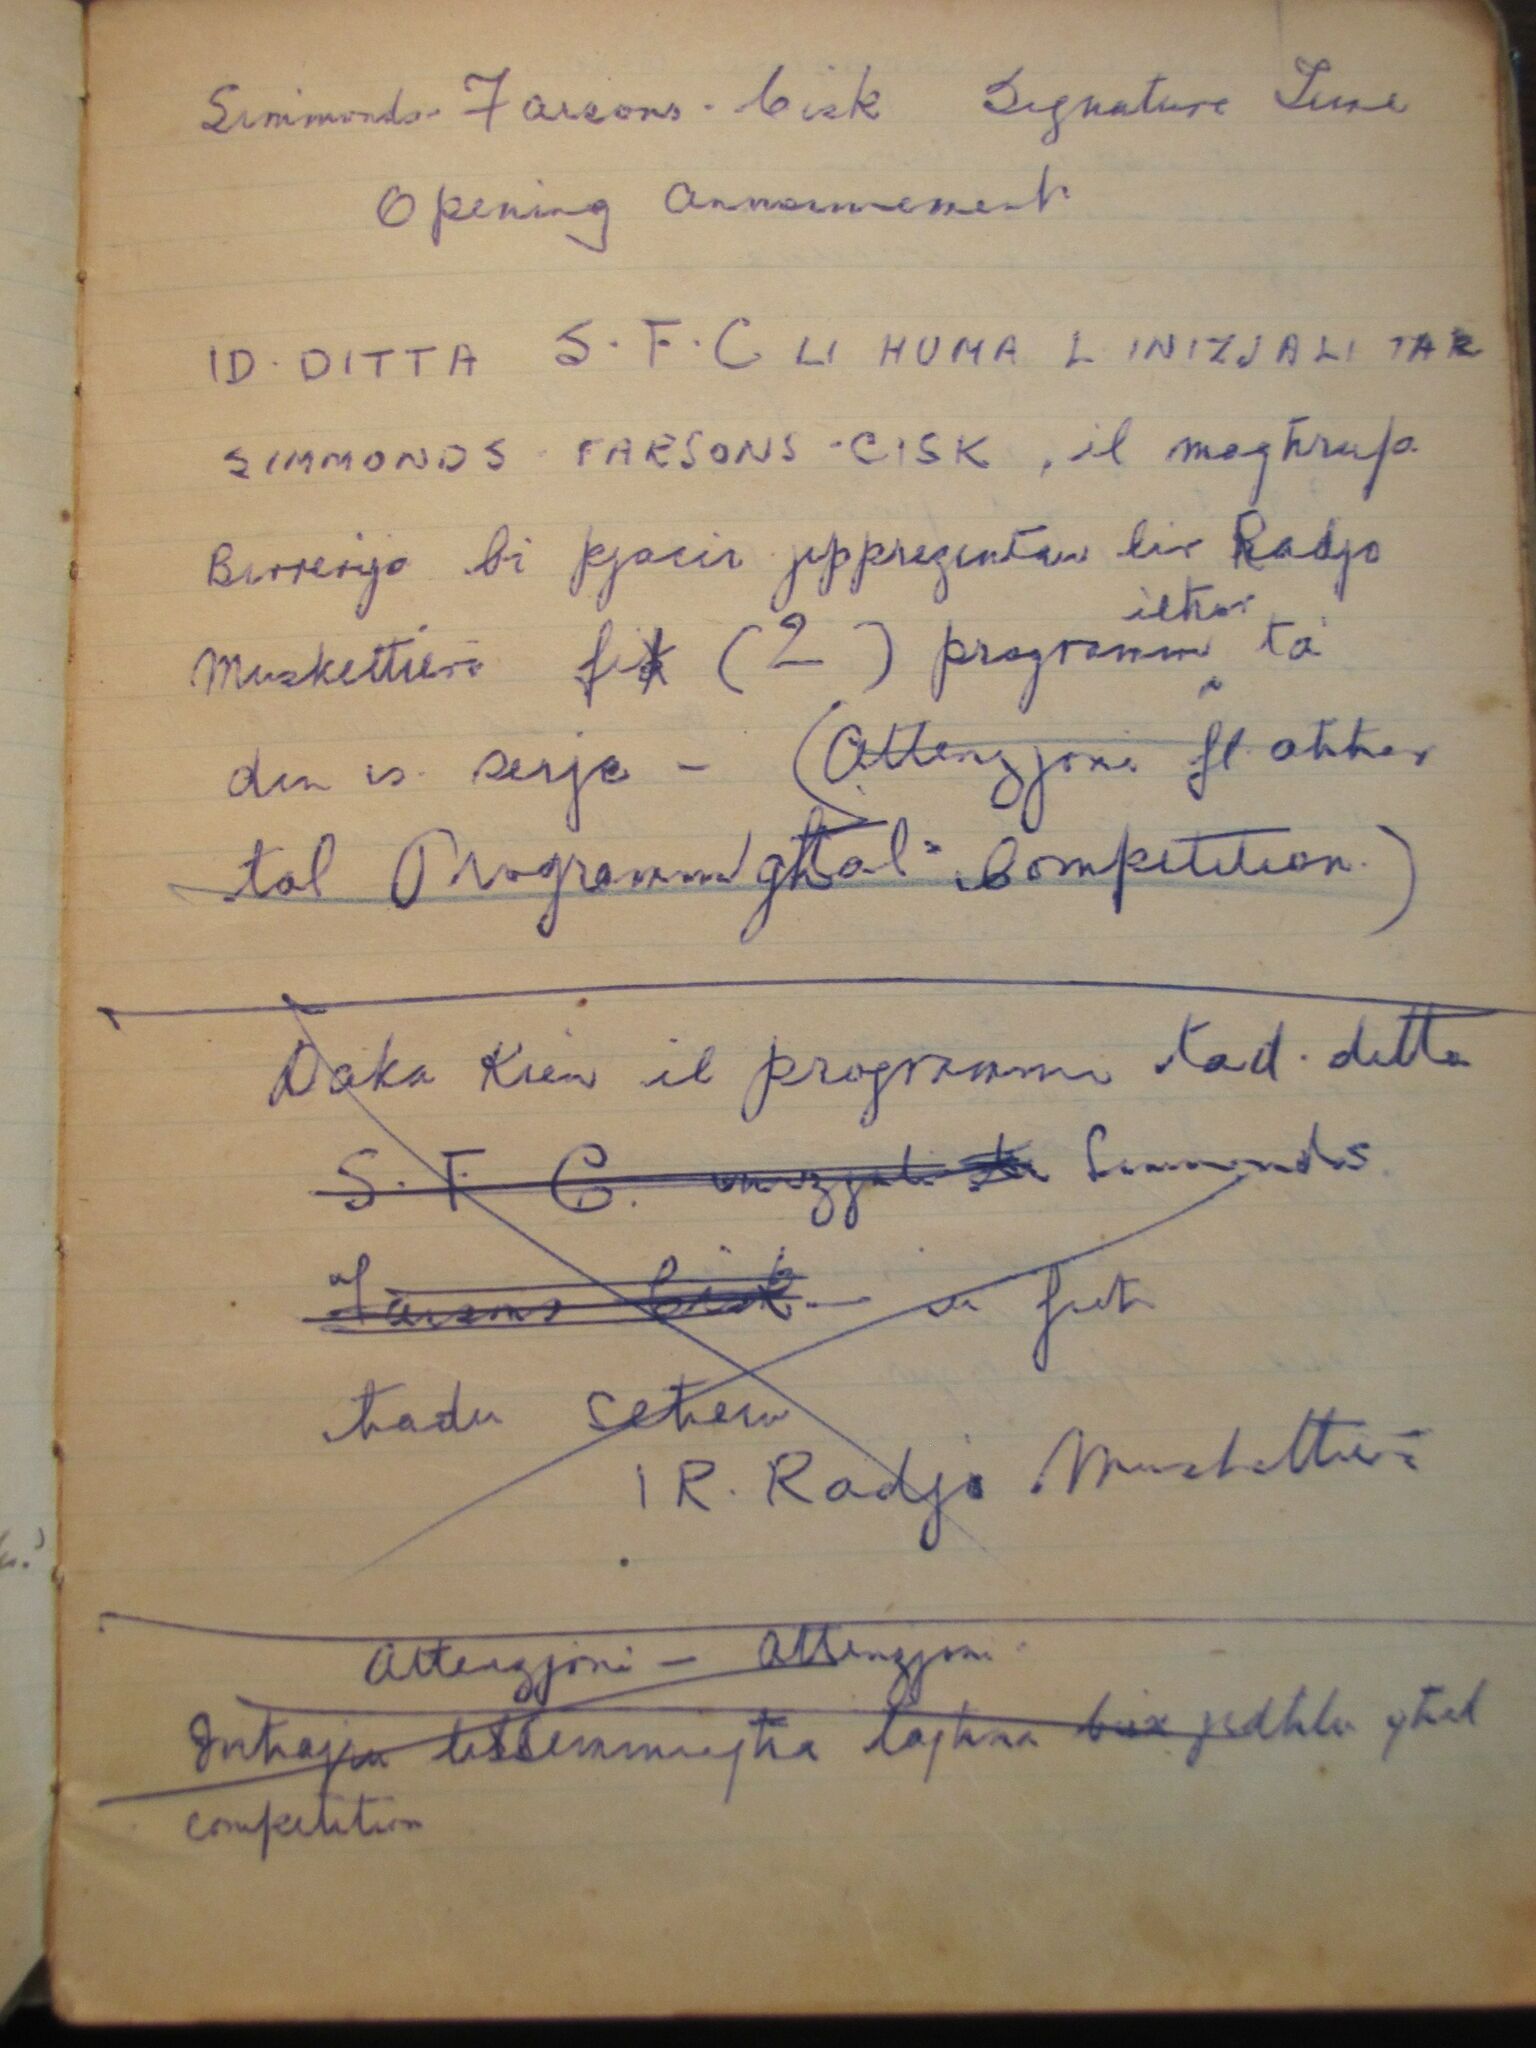 Simmonds-Farsons-Cisk Signature Tune
Opening Announcement
ID-DITTA S.F.C LI HUMA L INIZJALI TAR
SIMMONDS-FARSONS-CISK, il magħrufa
Birrerija bi pjacir jipprezentaw lir Radjo
Muskettieri (2) programm ieħor ta
din is. serje - (Attenzjoni fl aħħar
tal Programm għal Competition.)
Daka Kien il programm tad-ditta
S. F. C. inizjali ta Simmonds
Farsons Cisk - fih
ħadu sehem
IR. Radjo Muskettieri
Attenzjoni - Attenzjoni
lissemmiegħa tagħna biex jidħlu għal
competition